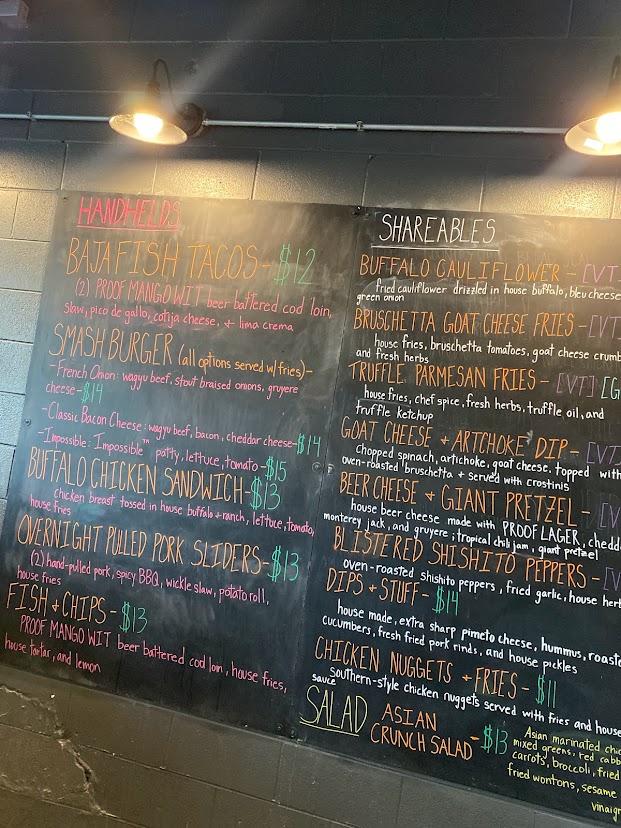 HANDHELDS
BAJA FISH TACOS - $12
(2) PROOF MANGO WIT beer battered cod loin,
slaw, pico de gallo, cotija cheese, + lima crema
SMASH BURGER (all options served w/ fries) -
- French Onion: wagyu beef, stout braised onions, gruyere
cheese - $14
- Classic Bacon Cheese: wagyu beef, bacon, cheddar cheese - $14
- Impossible: Impossible™ patty, lettuce, tomato - $15
BUFFALO CHICKEN SANDWICH - $13
chicken breast tossed in house buffalo + ranch, lettuce, tomato,
house fries
OVERNIGHT PULLED PORK SLIDERS - $13
(2) hand-pulled pork, spicy BBQ, wickle slaw, potato roll,
house fries
FISH + CHIPS - $13
PROOF MANGO WIT beer battered cod loin, house fries,
house tartar, and lemon
SHAREABLES
BUFFALO CAULIFLOWER - [VT]
fried cauliflower drizzled in house buffalo, bleu cheese
green onion
BRUSCHETTA GOAT CHEESE FRIES - [VT]
house fries, bruschetta tomatoes, goat cheese crumb
and fresh herbs
TRUFFLE PARMESAN FRIES - [VT] [G
house fries, chef spice, fresh herbs, truffle oil, and
truffle ketchup
GOAT CHEESE + ARTCHOKE DIP - [VT
chopped spinach, artichoke, goat cheese, topped with
oven-roasted bruschetta + served with crostinis
BEER CHEESE + GIANT PRETZEL - [V
house beer cheese made with PROOF LAGER, chedd
monterey jack, and gruyere; tropical chili jam, giant pretzel
BLISTERED SHISHITO PEPPERS - [V
oven-roasted shishito peppers, fried garlic, house herb
DIPS + STUFF - $14
house made, extra sharp pimeto cheese, hummus, roaste
cucumbers, fresh fried pork rinds, and house pickles
CHICKEN NUGGETS + FRIES - $11
southern-style chicken nuggets served with fries and house
sauce
SALAD
ASIAN
CRUNCH SALAD - $13
Asian marinated chic
mixed greens, red cabb
carrots, broccoli, fried
fried wontons, sesame
vinaig